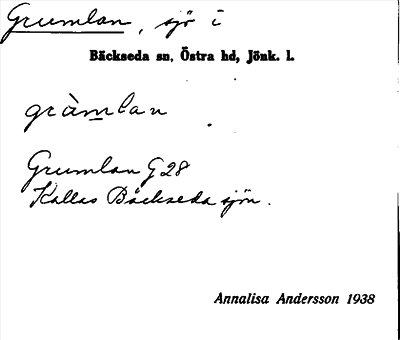 Grumlan, sjö i
Bäckseda sn, Östra hd, Jönk. l.
gràmlan
Grumlan G 28
Kallas Bäckseda sjön.
Annalisa Andersson 1938